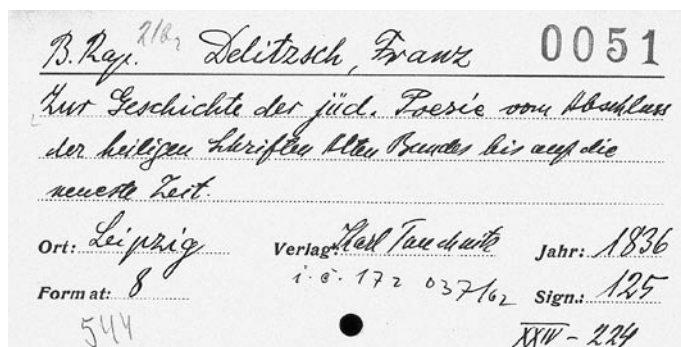 B. Kap. Delitzsch, Franz 0051
Zur Geschichte der jüd. Poesie vom Abschluss
der heiligen Schriften Alten Bundes bis auf die
neueste Zeit.
Ort: Leipzig Verlag: Karl Tauchnitz Jahr: 1836
i. é. 172 037/62
Format: 8 Sign.: 125
544 XXIV - 224